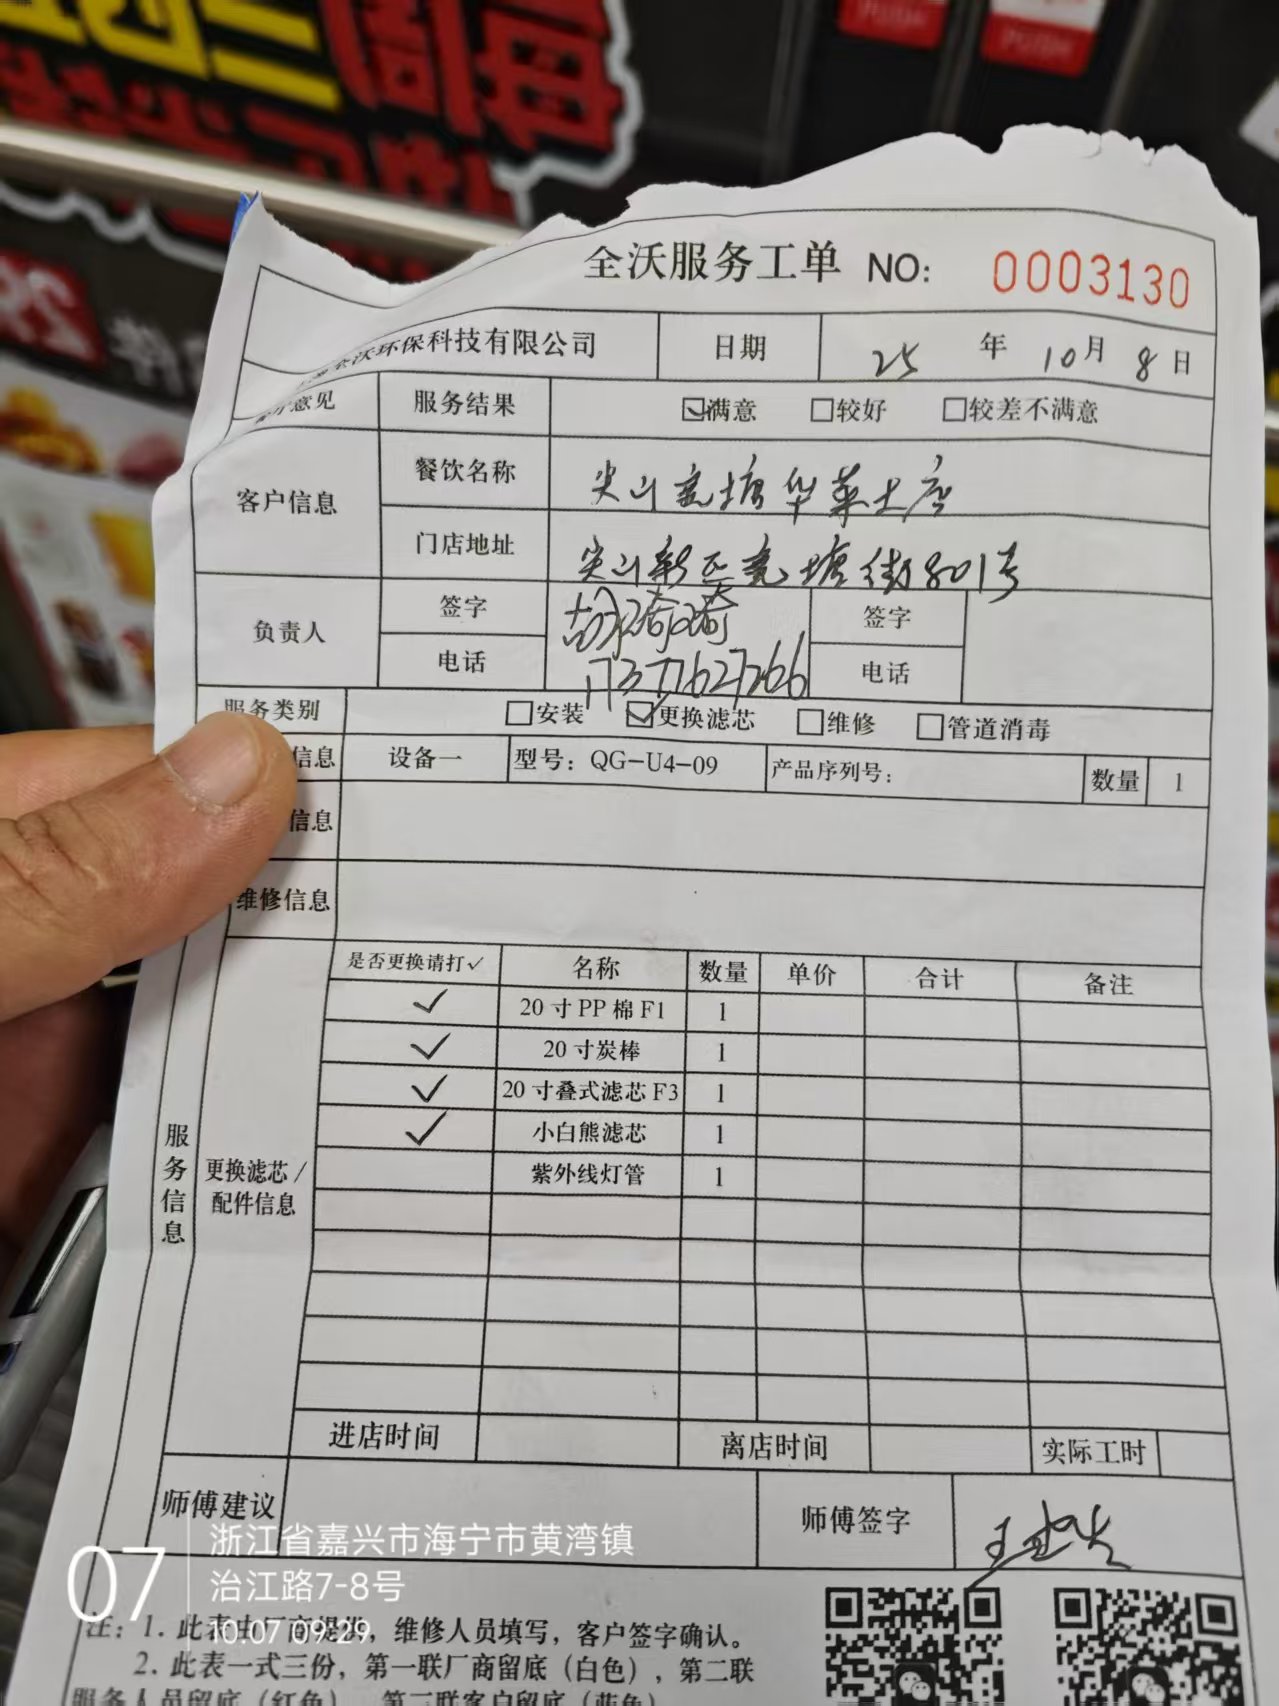 全沃服务工单 NO: 0003130
全沃环保科技有限公司 日期 25 年 10 月 8 日
意见 服务结果 ☑满意 □较好 □较差不满意
客户信息 餐饮名称 尖山塘华莱士店
门店地址 尖山新区塘街801号
负责人 签字 胡琦琦 签字
电话 17377627266 电话
服务类别 □安装 ☑更换滤芯 □维修 □管道消毒
信息 设备一 型号：QG-U4-09 产品序列号： 数量 1
信息
维修信息
是否更换请打✓ 名称 数量 单价 合计 备注
✓ 20寸PP棉F1 1
✓ 20寸炭棒 1
✓ 20寸叠式滤芯F3 1
✓ 小白熊滤芯 1
紫外线灯管 1
服务信息
更换滤芯/
配件信息
进店时间 离店时间 实际工时
师傅建议 师傅签字
07
浙江省嘉兴市海宁市黄湾镇
治江路7-8号
10.07 09:29
注：1. 此表由厂商提供，维修人员填写，客户签字确认。
2. 此表一式三份，第一联厂商留底（白色），第二联
服务人员留底（红色） 第三联客户留底（蓝色）